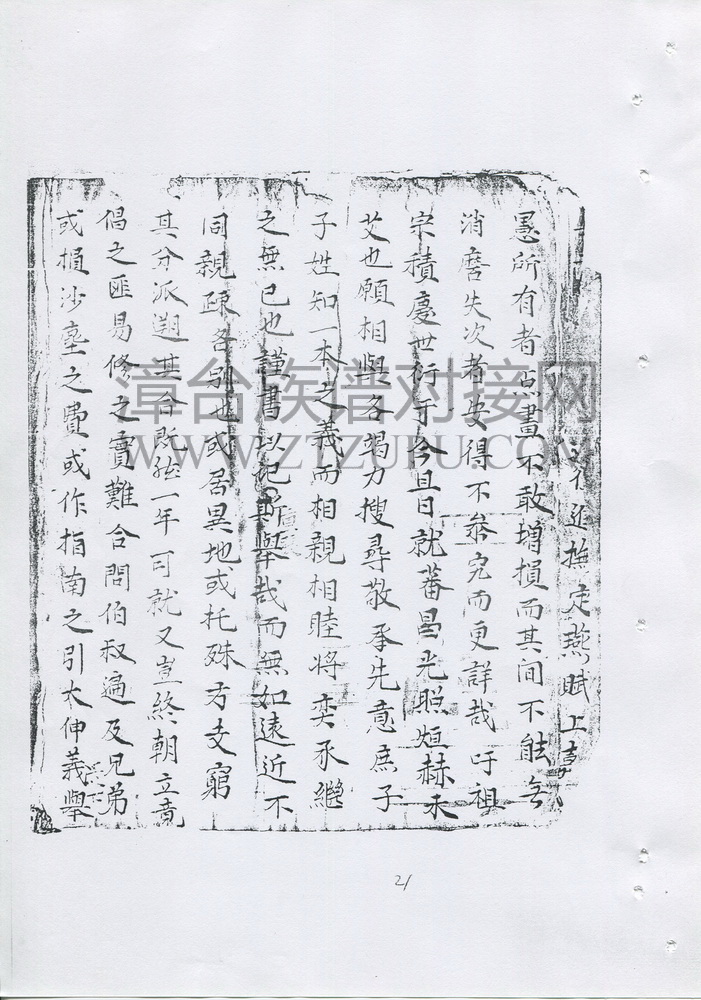 不延撫定燕賦上
愚所有者点畫不敢增損而其间不能无
消磨失次者安得不叅究而更詳哉吁祖
宗積慶世衍于今且日就蕃昌光照烜赫未
艾也願相與各竭力搜尋敬承先意庶子
子姓知一本之義而相親相睦將奕承繼
之無已也謹書以記斯舉哉而無如遠近不
同親疎各别也或居異地或托殊方支窮
其分派遡其合既経一年可就又豈終朝立竟
倡之匪易修之實難合問伯叔遍及兄弟
或損沙𡋯之費或作指南之引大伸義舉
漳台族谱对接网
WWW.ZTZUPU.COM
21